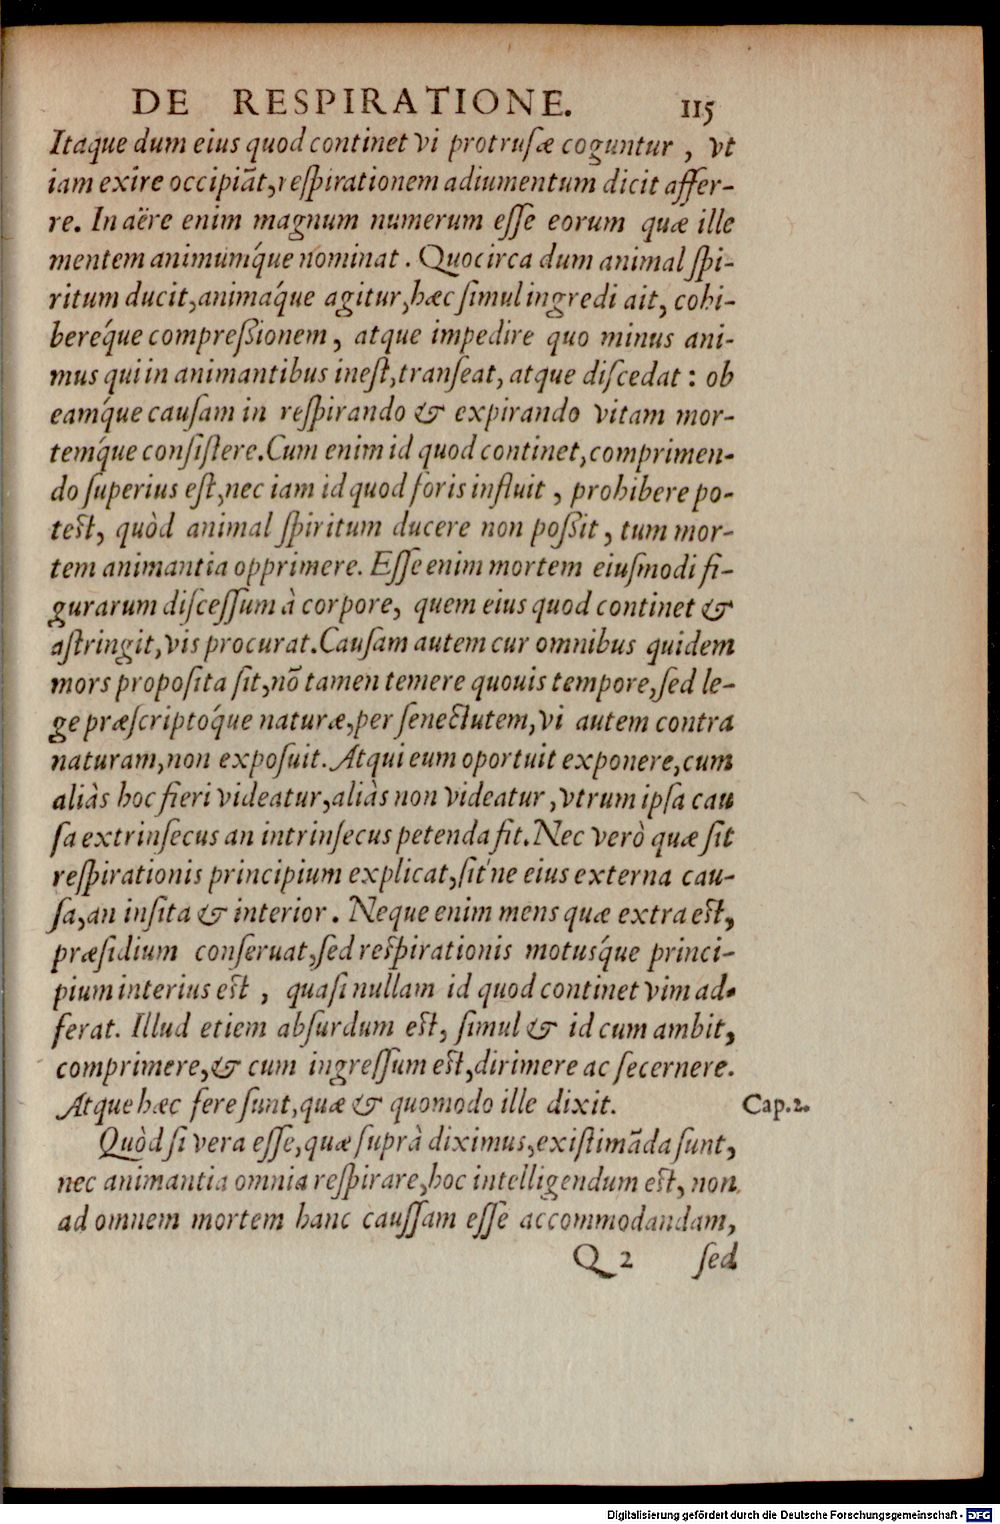 DE RESPIRATIONE. 115
Itaque dum eius quod continet vi protrusæ coguntur, vt
iam exire occipiãt, respirationem adiumentum dicit affer-
re. In aëre enim magnum numerum esse eorum quæ ille
mentem animumq́ue nominat. Quocirca dum animal spi-
ritum ducit, animaq́ue agitur, hæc simul ingredi ait, cohi-
bereq́ue compreßionem, atque impedire quo minus ani-
mus qui in animantibus inest, transeat, atque discedat: ob
eamq́ue causam in respirando & expirando vitam mor-
temq́ue consistere. Cum enim id quod continet, comprimen-
do superius est, nec iam id quod foris influit, prohibere po-
test, quòd animal spiritum ducere non poßit, tum mor-
tem animantia opprimere. Esse enim mortem eiusmodi fi-
gurarum discessum à corpore, quem eius quod continet &
astringit, vis procurat. Causam autem cur omnibus quidem
mors proposita sit, nõ tamen temere quouis tempore, sed le-
ge præscriptoq́ue naturæ, per senectutem, vi autem contra
naturam, non exposuit. Atqui eum oportuit exponere, cum
aliàs hoc fieri videatur, aliàs non videatur, vtrum ipsa cau
sa extrinsecus an intrinsecus petenda sit. Nec verò quæ sit
respirationis principium explicat, sit'ne eius externa cau-
sa, an insita & interior. Neque enim mens quæ extra est,
præsidium conseruat, sed respirationis motusq́ue princi-
pium interius est, quasi nullam id quod continet vim ad-
ferat. Illud etiem absurdum est, simul & id cum ambit,
comprimere, & cum ingressum est, dirimere ac secernere.
Atque hæc fere sunt, quæ & quomodo ille dixit.
Cap.2.
Quòd si vera esse, quæ suprà diximus, existimãda sunt,
nec animantia omnia respirare, hoc intelligendum est, non
ad omnem mortem hanc caussam esse accommodandam,
Q 2 sed
Digitalisierung gefördert durch die Deutsche Forschungsgemeinschaft - DFG